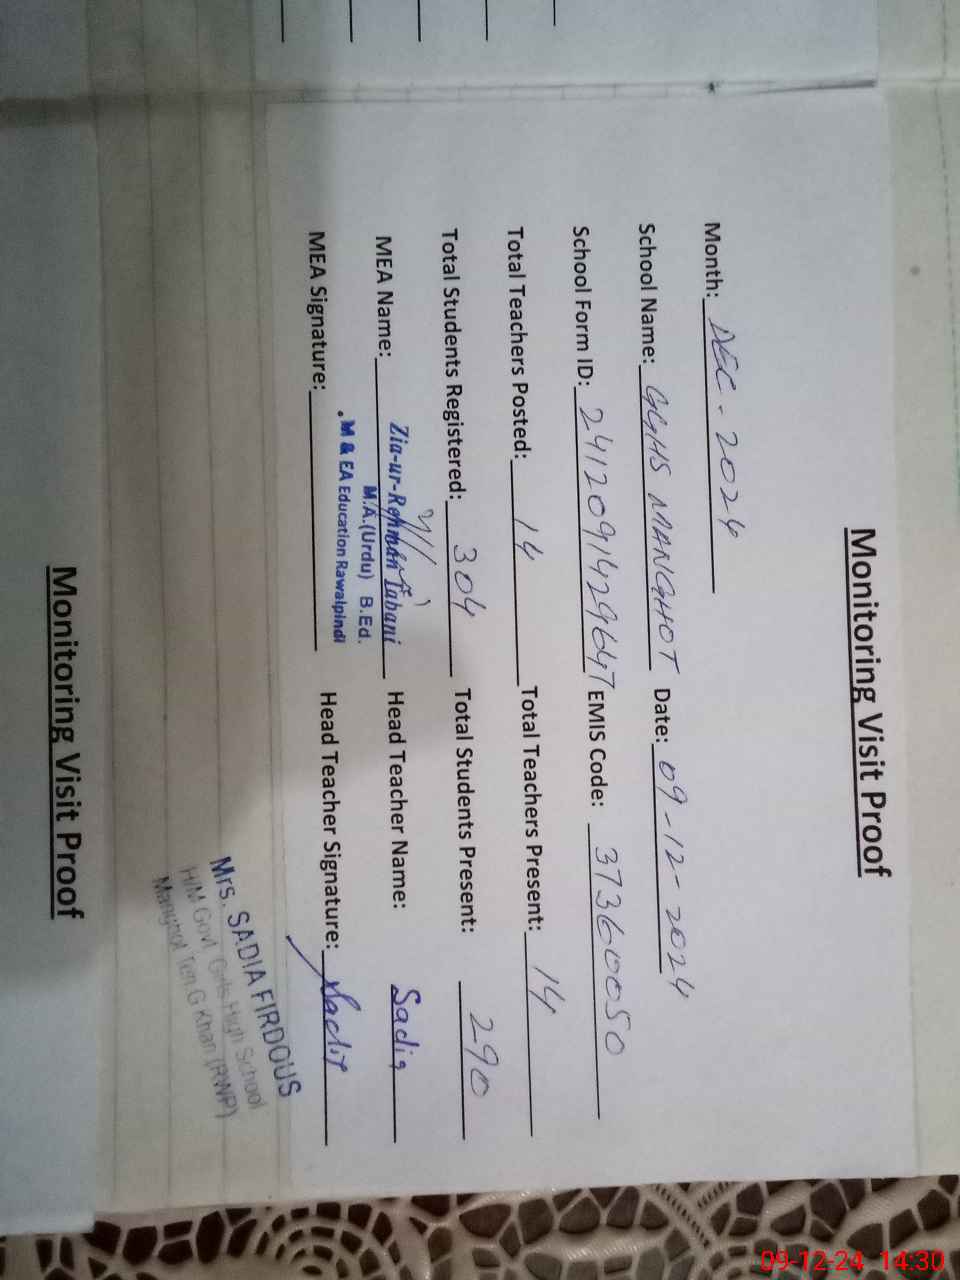 Monitoring Visit Proof
Month: DEC - 2024
School Name: GGHS MANGHOT Date: 09-12-2024
School Form ID: 2412091429647 EMIS Code: 37360050
Total Teachers Posted: 14 Total Teachers Present: 14
Total Students Registered: 304 Total Students Present: 290
MEA Name: Zia-ur-Rehman Tabani Head Teacher Name: Sadia
M.A.(Urdu) B.Ed.
M & EA Education Rawalpindi
MEA Signature: Head Teacher Signature: Sadia
Mrs. SADIA FIRDOUS
H/M Govt. Girls High School
Manghot Teh. G Khan (RWP)
Monitoring Visit Proof
09-12-24 14:30